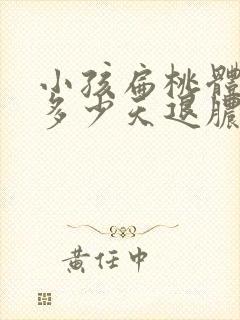 小孩扁桃體
多少天退膿
黃任中